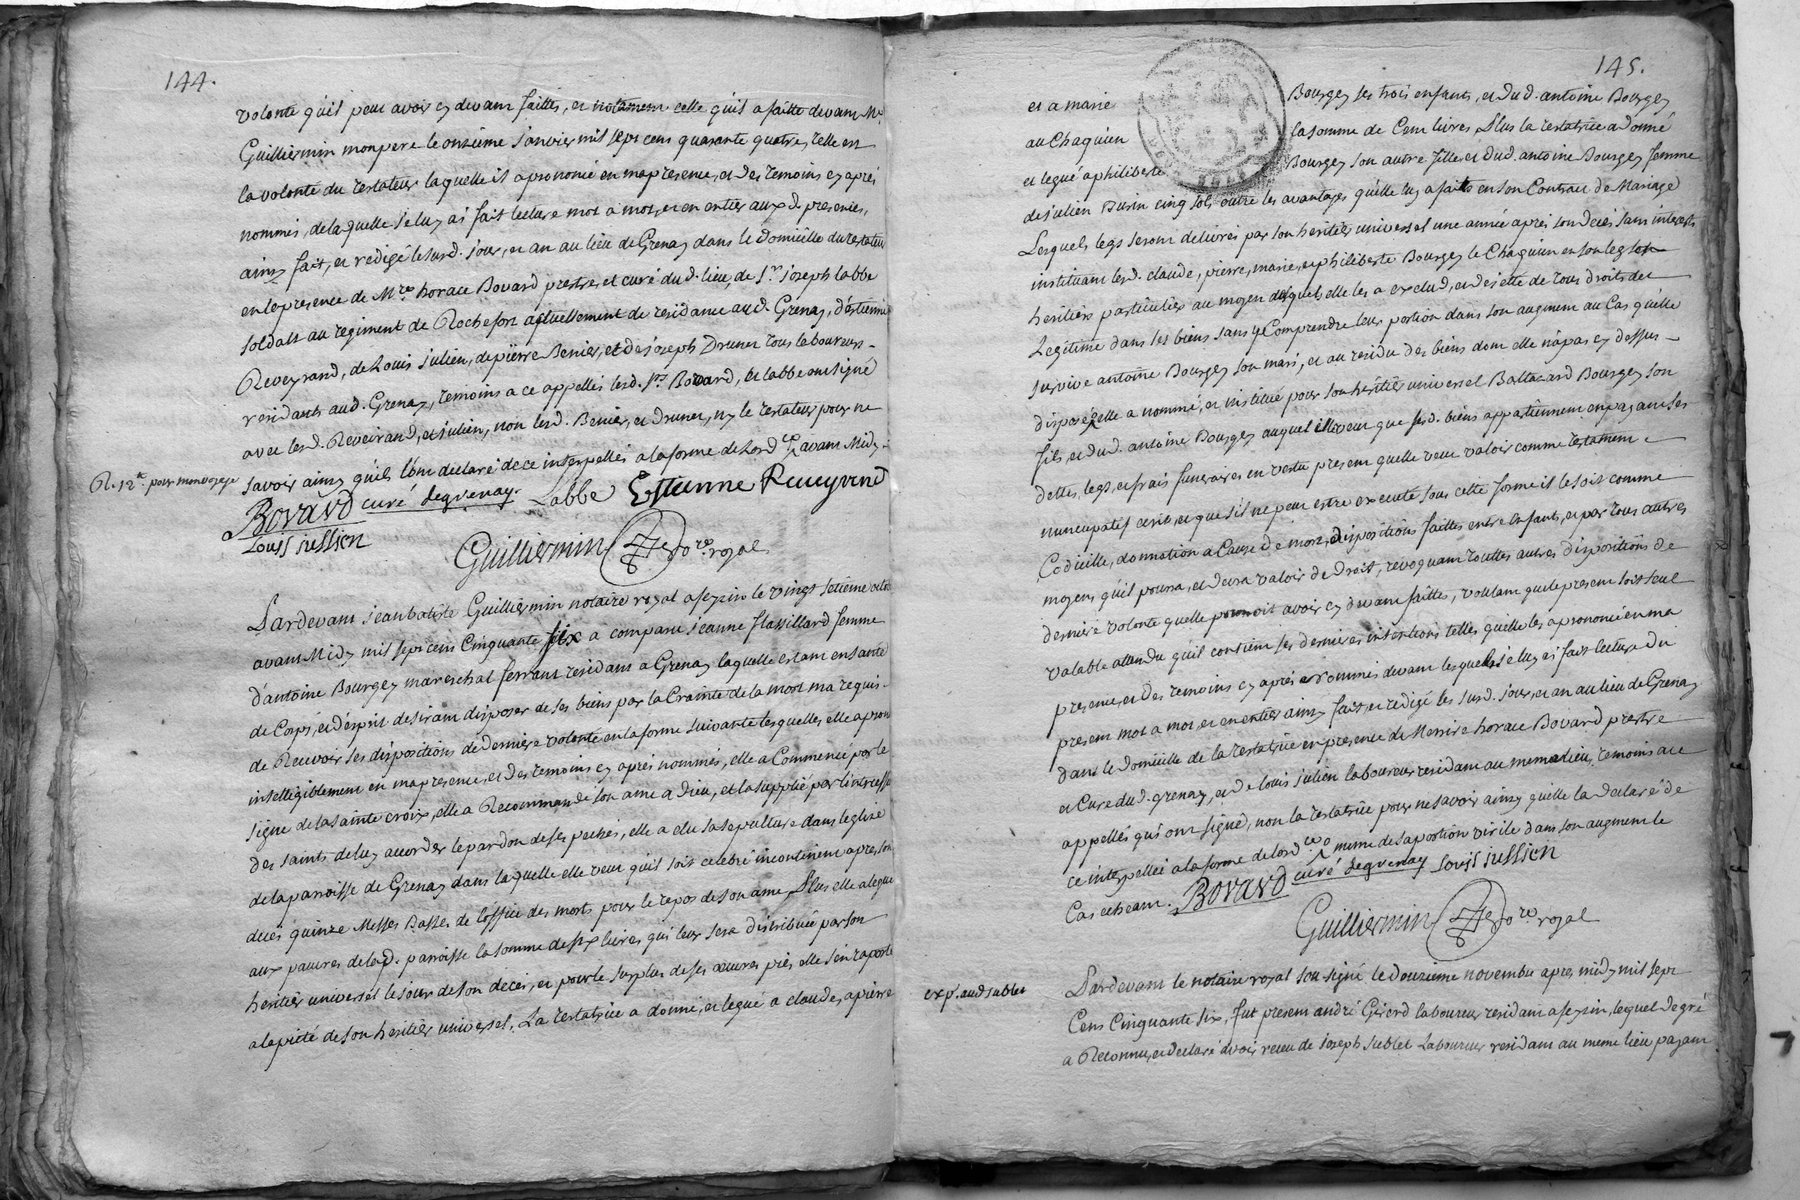 144.
volonté qu'il peut avoir cy devant faitte, et notament celle qu'il a faitte devant Me
Guilliermin mon pere le onzieme janvier mil sept cens quarante quatre, telle est
la volonté du testateur laquelle il a prononcé en ma presence, et des temoins cy aprés
nommés, de laquelle je luy ai fait lecture mot a mot, et en entier aux d. presences,
ainsy fait, et redigé le susd. jour, et an au lieu de Grenay dans le domicille du testateur
en la presence de Mre horace Bovard prestre, et curé du d. lieu, de Sr. joseph labbe
soldat au regiment de Rochefort actuellement de residance aud. Grenay, d'estienne
Reveyrand, de Louis julien, de pierre Benier, et de joseph Drunet tous laboureurs
residants aud. Grenay, temoins a ce appellés lesd. Srs Bovard, et labbe ont signé
avec lesd. Reveirand, et julien, non lesd. Benier, et drunet, ny le testateur pour ne
savoir ainsy qu'ils l'ont declaré de ce interpellés a la forme de l'ord ce avant Midy.
R. 12 s pour mon voyage
Bovard curé degrenay. Labbe Estienne Reveyrend
Louis jullien
Guilliermin no.re royal
Pardevant jean batiste Guilliermin notaire royal a seyzin le vingt setieme
avant Midy mil sept cens Cinquante six a comparu jeanne flassillard femme
d'antoine Bourgey mareschal ferrant residant a Grenay laquelle estant en santé
de Corps, et d'esprit desirant disposer de ses biens par la Crainte de la mort ma requis
de Recevoir ses dispositions de derniere volonté en la forme suivante lesquelles elle a prononcé
intelligiblement en ma presence, et des temoins cy aprés nommés, elle a Commencé par le
signe de la sainte croix, elle a Recommandé son ame a dieu, et la supplié par l'intercession
des saints de luy accorder le pardon de ses pechés, elle a elu sa sepulture dans leglise
de la paroisse de Grenay dans laquelle elle veut qu'il soit celebré incontinent apres son
decés quinze Messes Basses de l'office des morts pour le repos de son ame Plus elle a legué
aux pauvres de lad. paroisse la somme de six livres qui leur sera distribuée par son
heritier universel le jour de son décés, et pour le surplus de ses œuvres pies, elle s'en raporte
a la pieté de son heritier universel. La testatrice a donné, et legué a claude, a pierre
145.
et a marie Bourgey ses trois enfants, et dud. antoine Bourgey
au Chaquun la somme de Cent livres Plus la testatrice a donné
et legué a philiberte Bourgey son autre fille et dud. antoine Bourgey femme
de julien Burin cinq sols outre les avantages qu'elle luy a faits en son Contrat de Mariage
Lesquels legs seront delivrés par son heritier universel une année aprés son decés sans interests
instituant lesd. claude, pierre, marie, et philiberte Bourgey le Chaquun en son leg
heritiers particuliers au moyen desquels elle les a exclud, et dejetté de tous droits de
Legitime dans ses biens sans y Comprendre leur portion dans son augment au Cas quelle
survive antoine Bourgey son mari, et au residu des biens dont elle n'a pas cy dessus
disposé, elle a nommé, et institué pour son heritier universel Baltazard Bourgey son
fils, et dud. antoine Bourgey auquel elle veut que sesd. biens appartiennent en payant ses
dettes, legs, et frais funeraires en vertu present quelle veut valoir comme testament
nuncupatif ecrit, et que s'il ne peut estre executé sous cette forme il le soit comme
Codicille, donnation a Cause de mort, dispositions faittes entre Enfants, et par tous autres
moyens qu'il pourra, et devra valoir de Droit, revoquant touttes autres dispositions de
derniere volonté quelle pourroit avoir cy devant faittes, voulant que le present soit seul
valable attendu qu'il contient ses dernieres intentions telles quelle les a prononcé en ma
presence, et des temoins cy aprés nommés devant lesquels je luy ai fait lecture du
present mot a mot, et en entier ainsy fait, et redigé les susd. jour, et an au lieu de Grenay
dans le domicille de la testatrice en presence de Messire horace Bovard prestre
et Curé dud. grenay, et de louis julien laboureur residant au meme lieu, temoins a ce
appellés qui ont signé, non la testatrice pour ne savoir ainsy quelle la declaré de
ce interpellée a la forme de l'ord ce meme de sa portion virile dans son augment le
Cas echeant. Bovard curé degrenay Louis jullien
Guilliermin no.re royal
exp. aud sublet
Pardevant le notaire royal sou signé le douzieme novembre apres midy mil sept
Cens Cinquante six, fut present andré Gérord laboureur residant a seyzin, lequel de gré
a Reconnu, et declaré avoir receu de joseph sublet Laboureur residant au meme lieu payant